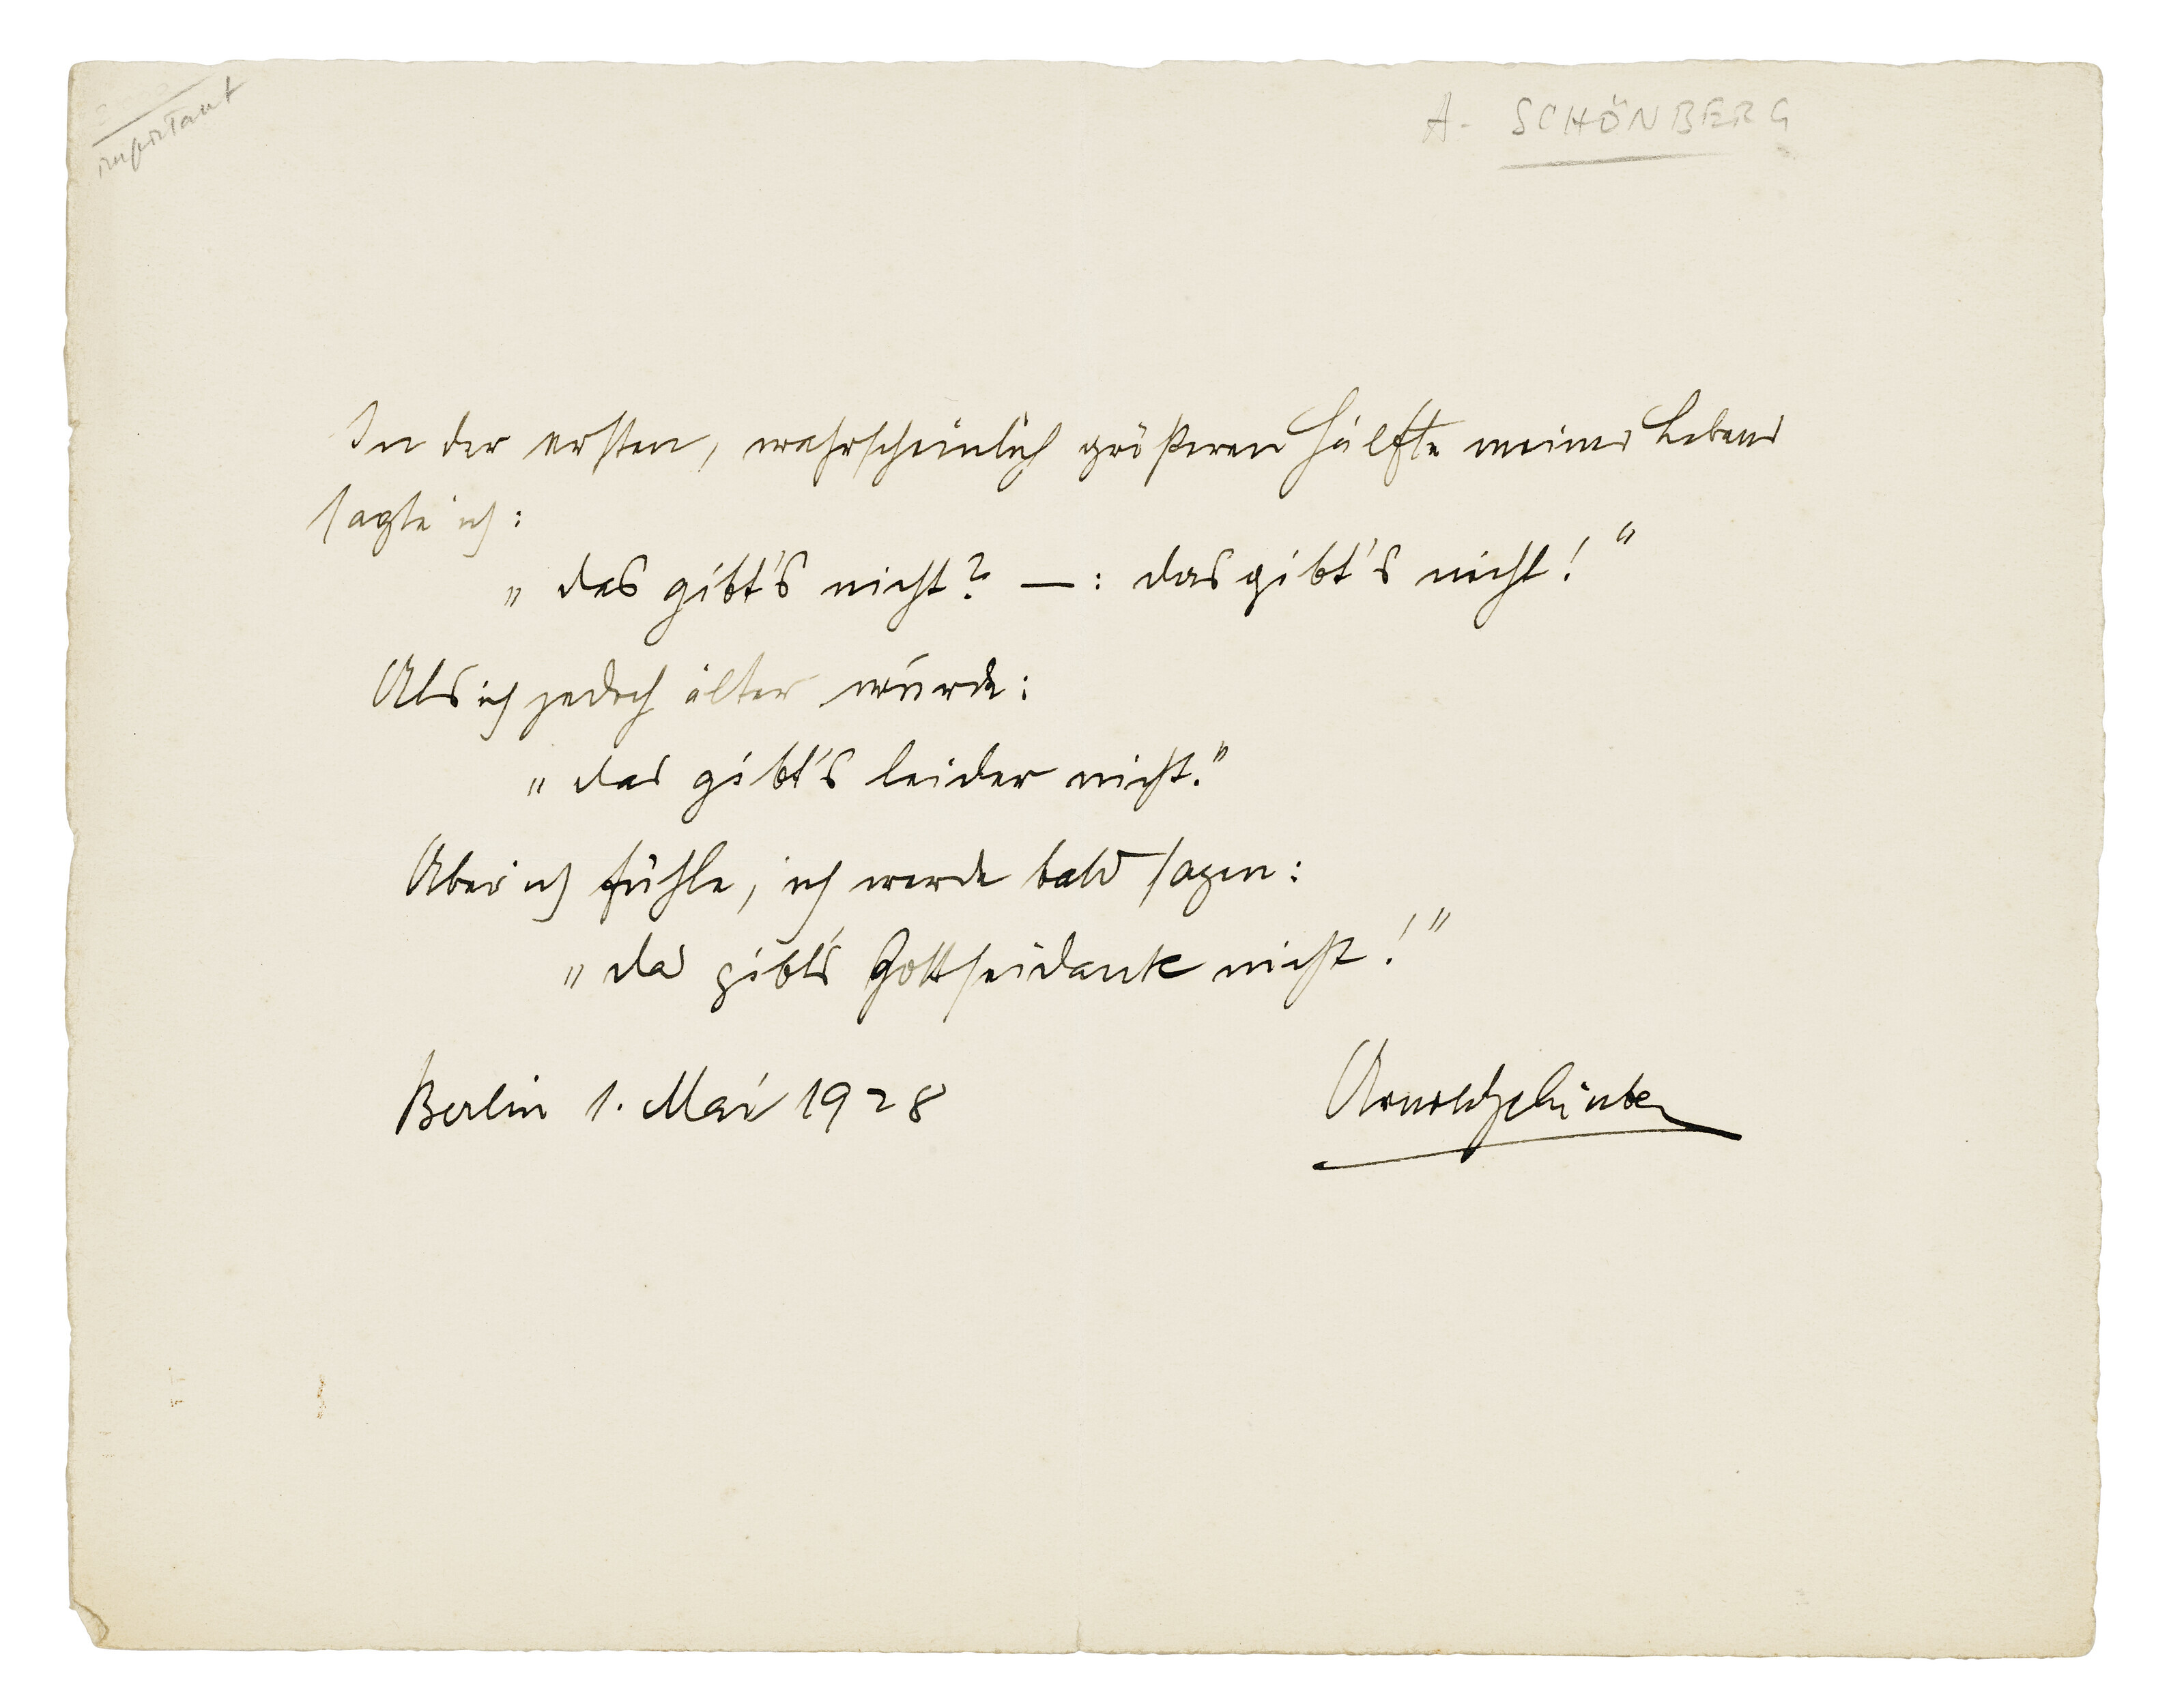 important
A. SCHÖNBERG
In der ersten, wahrscheinlich größeren Hälfte meines Lebens
sagte ich:
„das gibt's nicht? —: das gibt's nicht!“
Als ich jedoch älter wurde:
„das gibt's leider nicht."
Aber ich fühle, ich werde bald sagen:
„das gibts Gottseidank nicht!"
Berlin 1. Mai 1928
Arnold Schönberg